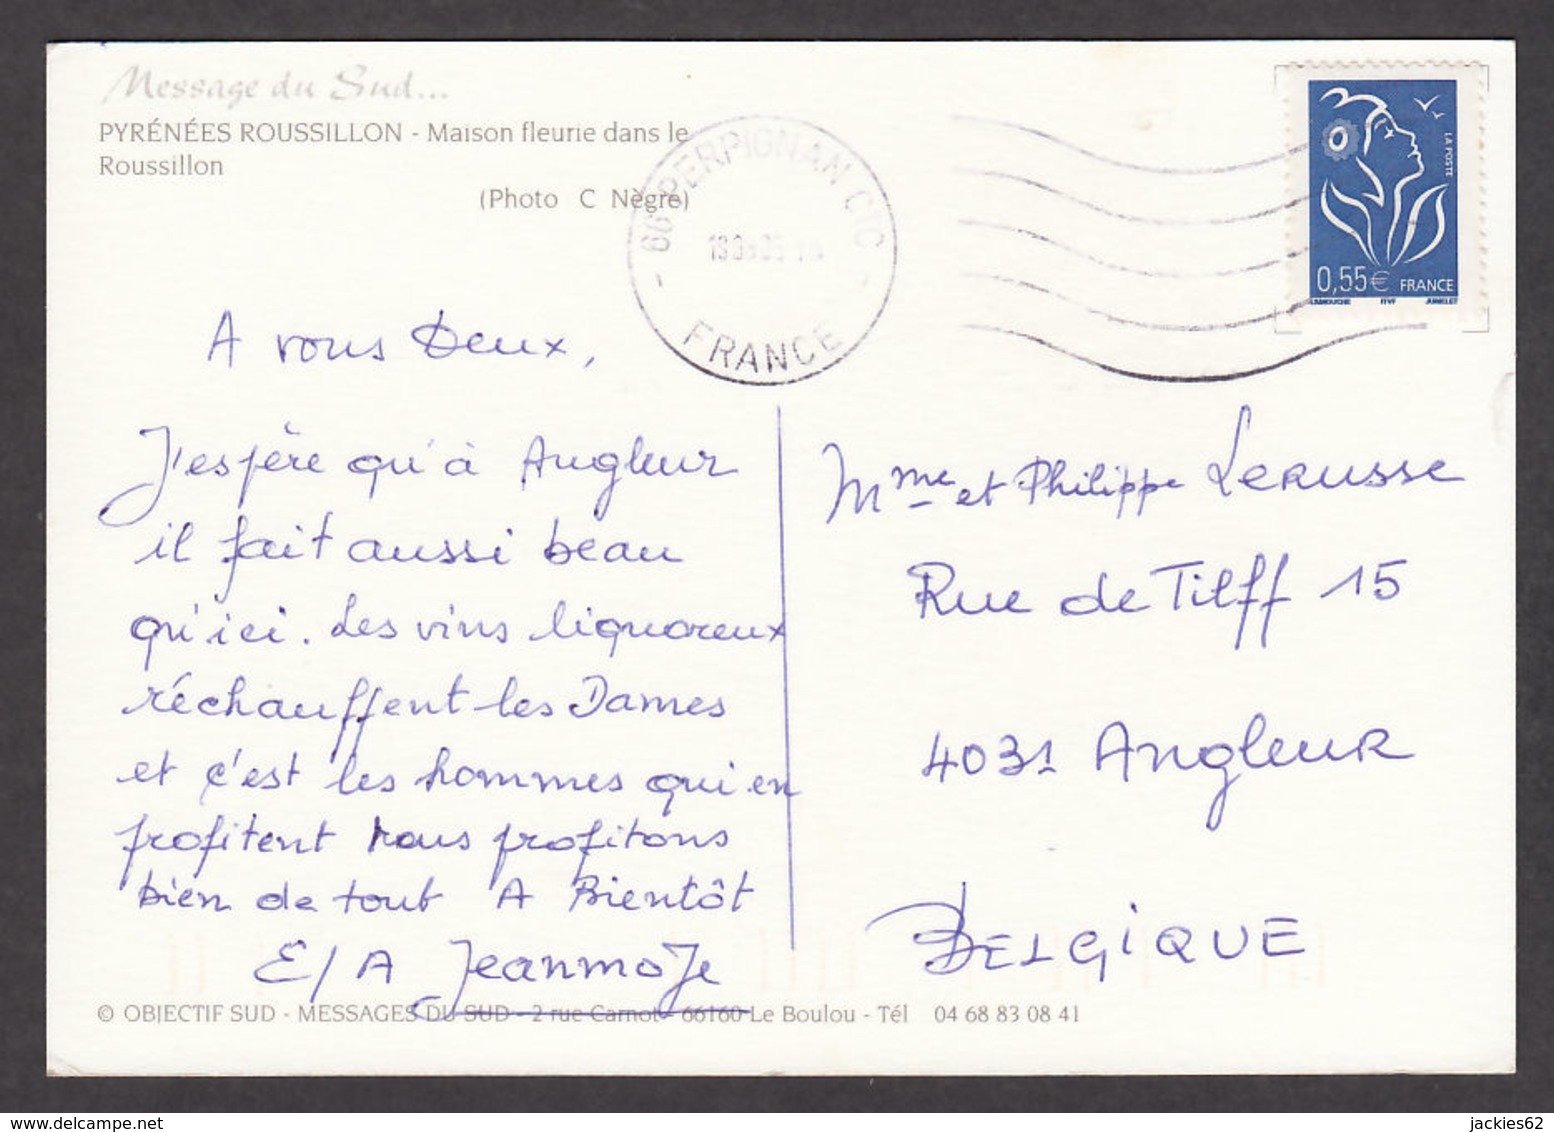 Message du Sud...
PYRÉNÉES ROUSSILLON - Maison fleurie dans le
Roussillon
(Photo C Nègre)
66 PERPIGNAN CTC
FRANCE
LA POSTE
0,55€ FRANCE
LAMOUCHE ITVF JUMELET
A vous Deux,
J'espère qu'à Angleur
il fait aussi beau
qu'ici. Les vins liquoreux
réchauffent les Dames
et c'est les hommes qui en
profitent nous profitons
bien de tout A Bientôt
E/A
Mme et Philippe Lerusse
Rue de Tilff 15
4031 Angleur
BELGIQUE
© OBJECTIF SUD - MESSAGES DU SUD - 2 rue Carnot - 66160 Le Boulou - Tél 04 68 83 08 41
jackies62